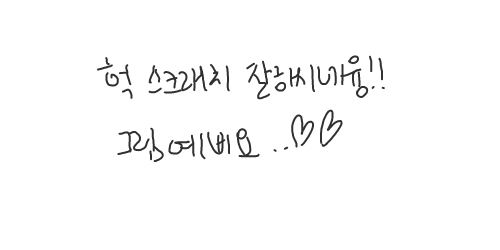 헉 스크래치 잘하시네용!!
그림 예뻐요..♡♡